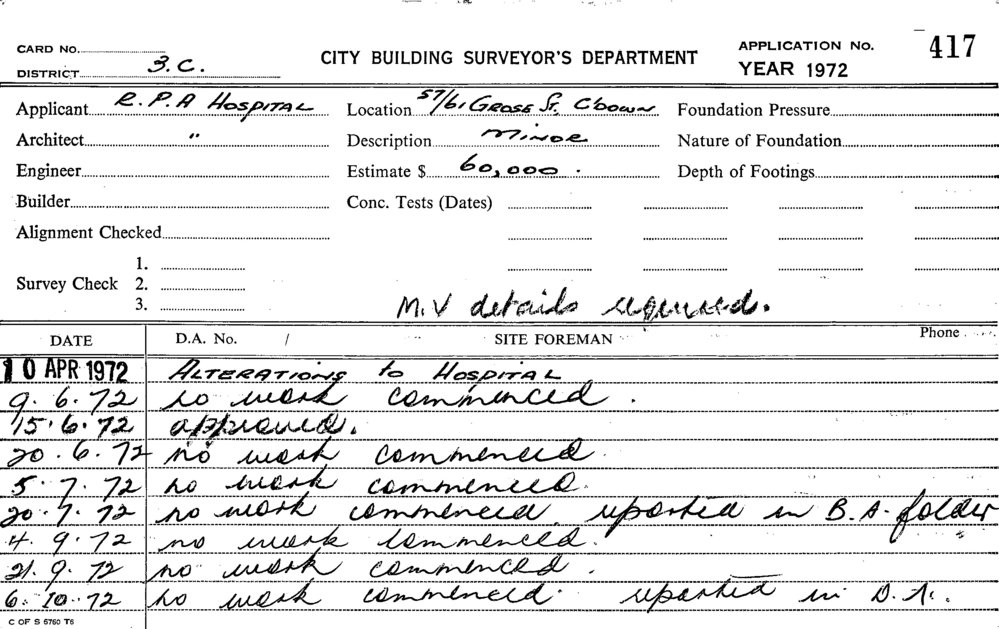 CARD No.
DISTRICT 3.C.
CITY BUILDING SURVEYOR'S DEPARTMENT
APPLICATION No. 417
YEAR 1972
Applicant R.P.A HOSPITAL Location 57/61 GROSE ST, C'DOWN Foundation Pressure
Architect " Description MINOR Nature of Foundation
Engineer Estimate $ 60,000. Depth of Footings
Builder Conc. Tests (Dates)
Alignment Checked
1.
Survey Check 2.
3.
M.V details required.
DATE D.A. No. / SITE FOREMAN Phone
10 APR 1972 ALTERATIONS to HOSPITAL
9.6.72 no work commenced.
15.6.72 approved.
20.6.72 no work commenced.
5.7.72 no work commenced.
20.7.72 no work commenced reported in B.A. folder
4.9.72 no work commenced.
21.9.72 no work commenced.
6.10.72 no work commenced. reported in D.A.
C OF S 6760 T6